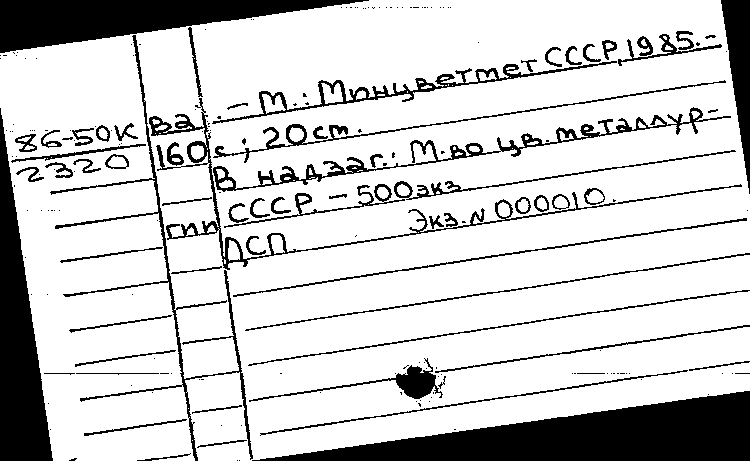 ва. – М.: Минцветмет СССР, 1985.–
86-50К 160 с; 20 см.
2320 В надзаг.: М-во цв. металлур-
СССР. – 500 экз
гпп ДСП. Экз. № 000010.